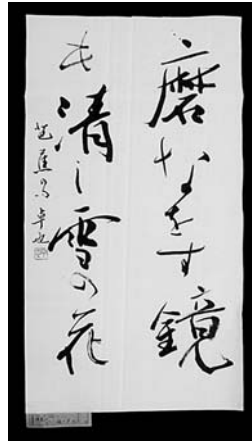 磨なをす鏡
も清し雪の花
芭蕉